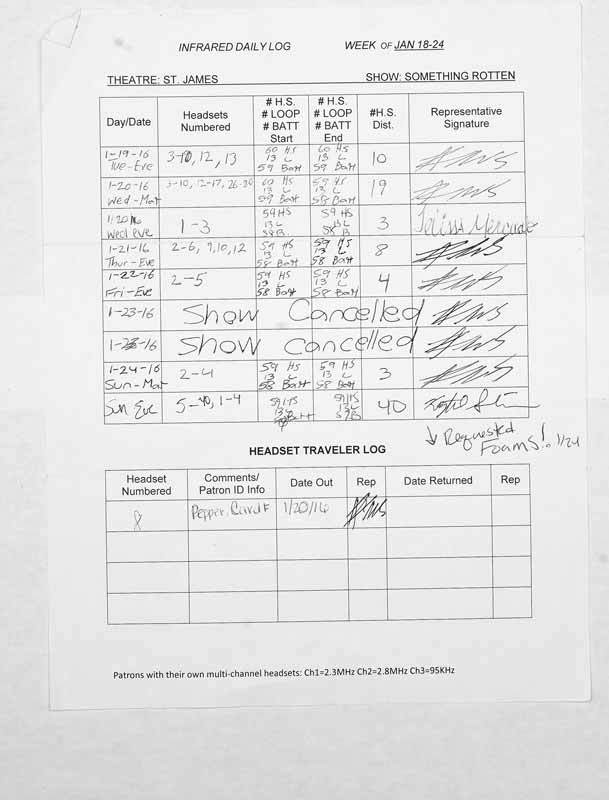 INFRARED DAILY LOG WEEK OF JAN 18-24
THEATRE: ST. JAMES SHOW: SOMETHING ROTTEN
Day/Date Headsets Numbered # H.S. # LOOP # BATT Start # H.S. # LOOP # BATT End #H.S. Dist. Representative Signature
1-19-16 Tue-Eve 3-10, 12, 13 60 HS 13 L 59 Batt 60 HS 13 L 59 Batt 10
1-20-16 Wed-Mat 3-10, 12-17, 26-30 60 HS 13 L 59 Batt 59 HS 13 L 58 Batt 19
1/20/16 Wed eve 1-3 59 HS 13 L 58 B 59 HS 13 L 58 B 3
1-21-16 Thur-Eve 2-6, 9,10,12 59 HS 13 L 58 Batt 59 HS 13 L 58 Batt 8
1-22-16 Fri-Eve 2-5 59 HS 13 L 58 Batt 59 HS 13 L 58 Batt 4
1-23-16 Show Cancelled
1-23-16 Show Cancelled
1-24-16 Sun-Mat 2-4 59 HS 13 L 58 Batt 59 HS 13 L 58 Batt 3
Sun Eve 59 HS 13 L 59 HS 13 L 58 B 40
Requested
Foams! 1/24
HEADSET TRAVELER LOG
Headset Numbered Comments/ Patron ID Info Date Out Rep Date Returned Rep
8 Pepper, 1/20/16
Patrons with their own multi-channel headsets: Ch1=2.3MHz Ch2=2.8MHz Ch3=95KHz